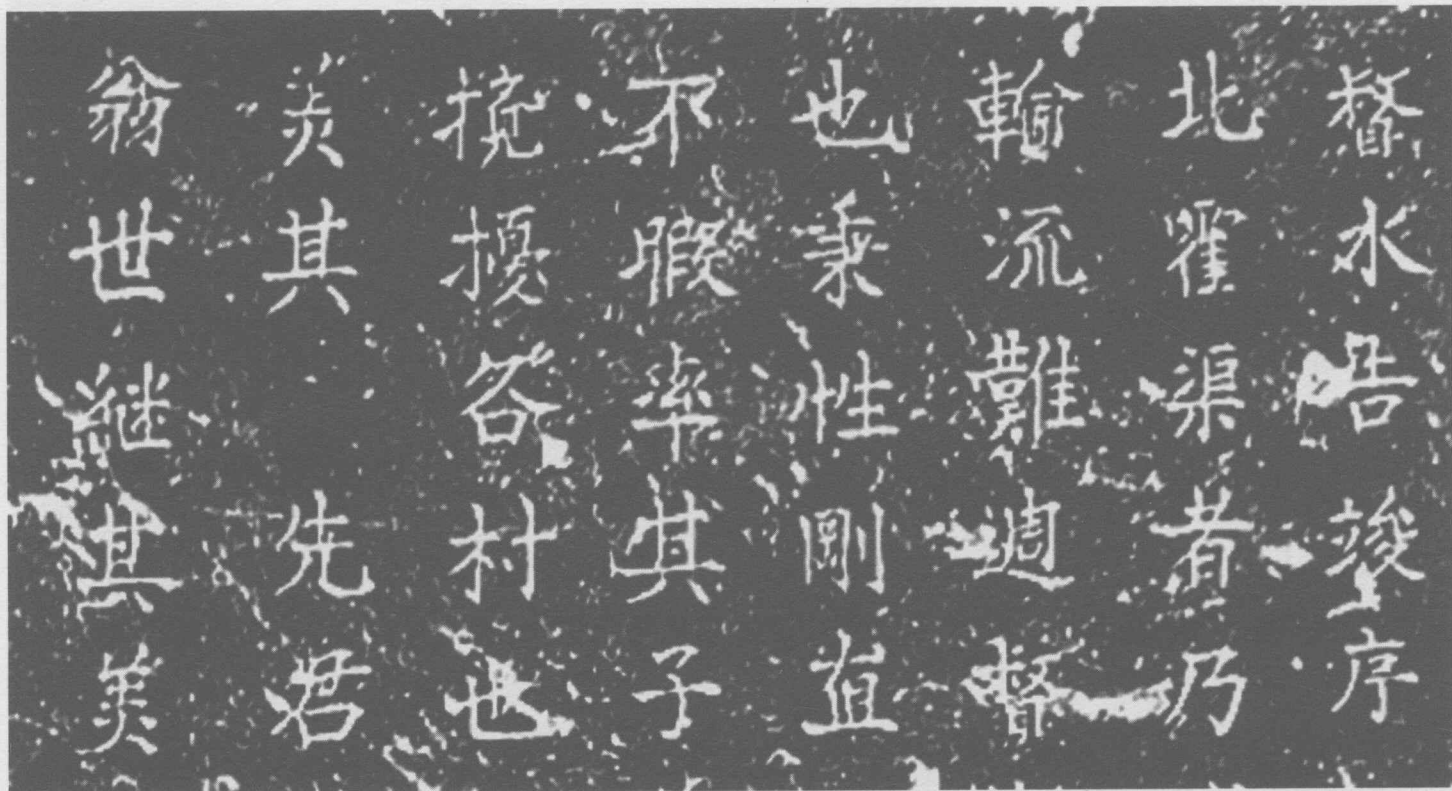 督水告竣序
北霍渠者乃
輪流難週督
也秉性剛直
不暇率其子
擾各村也
美其先君
翁世継其美